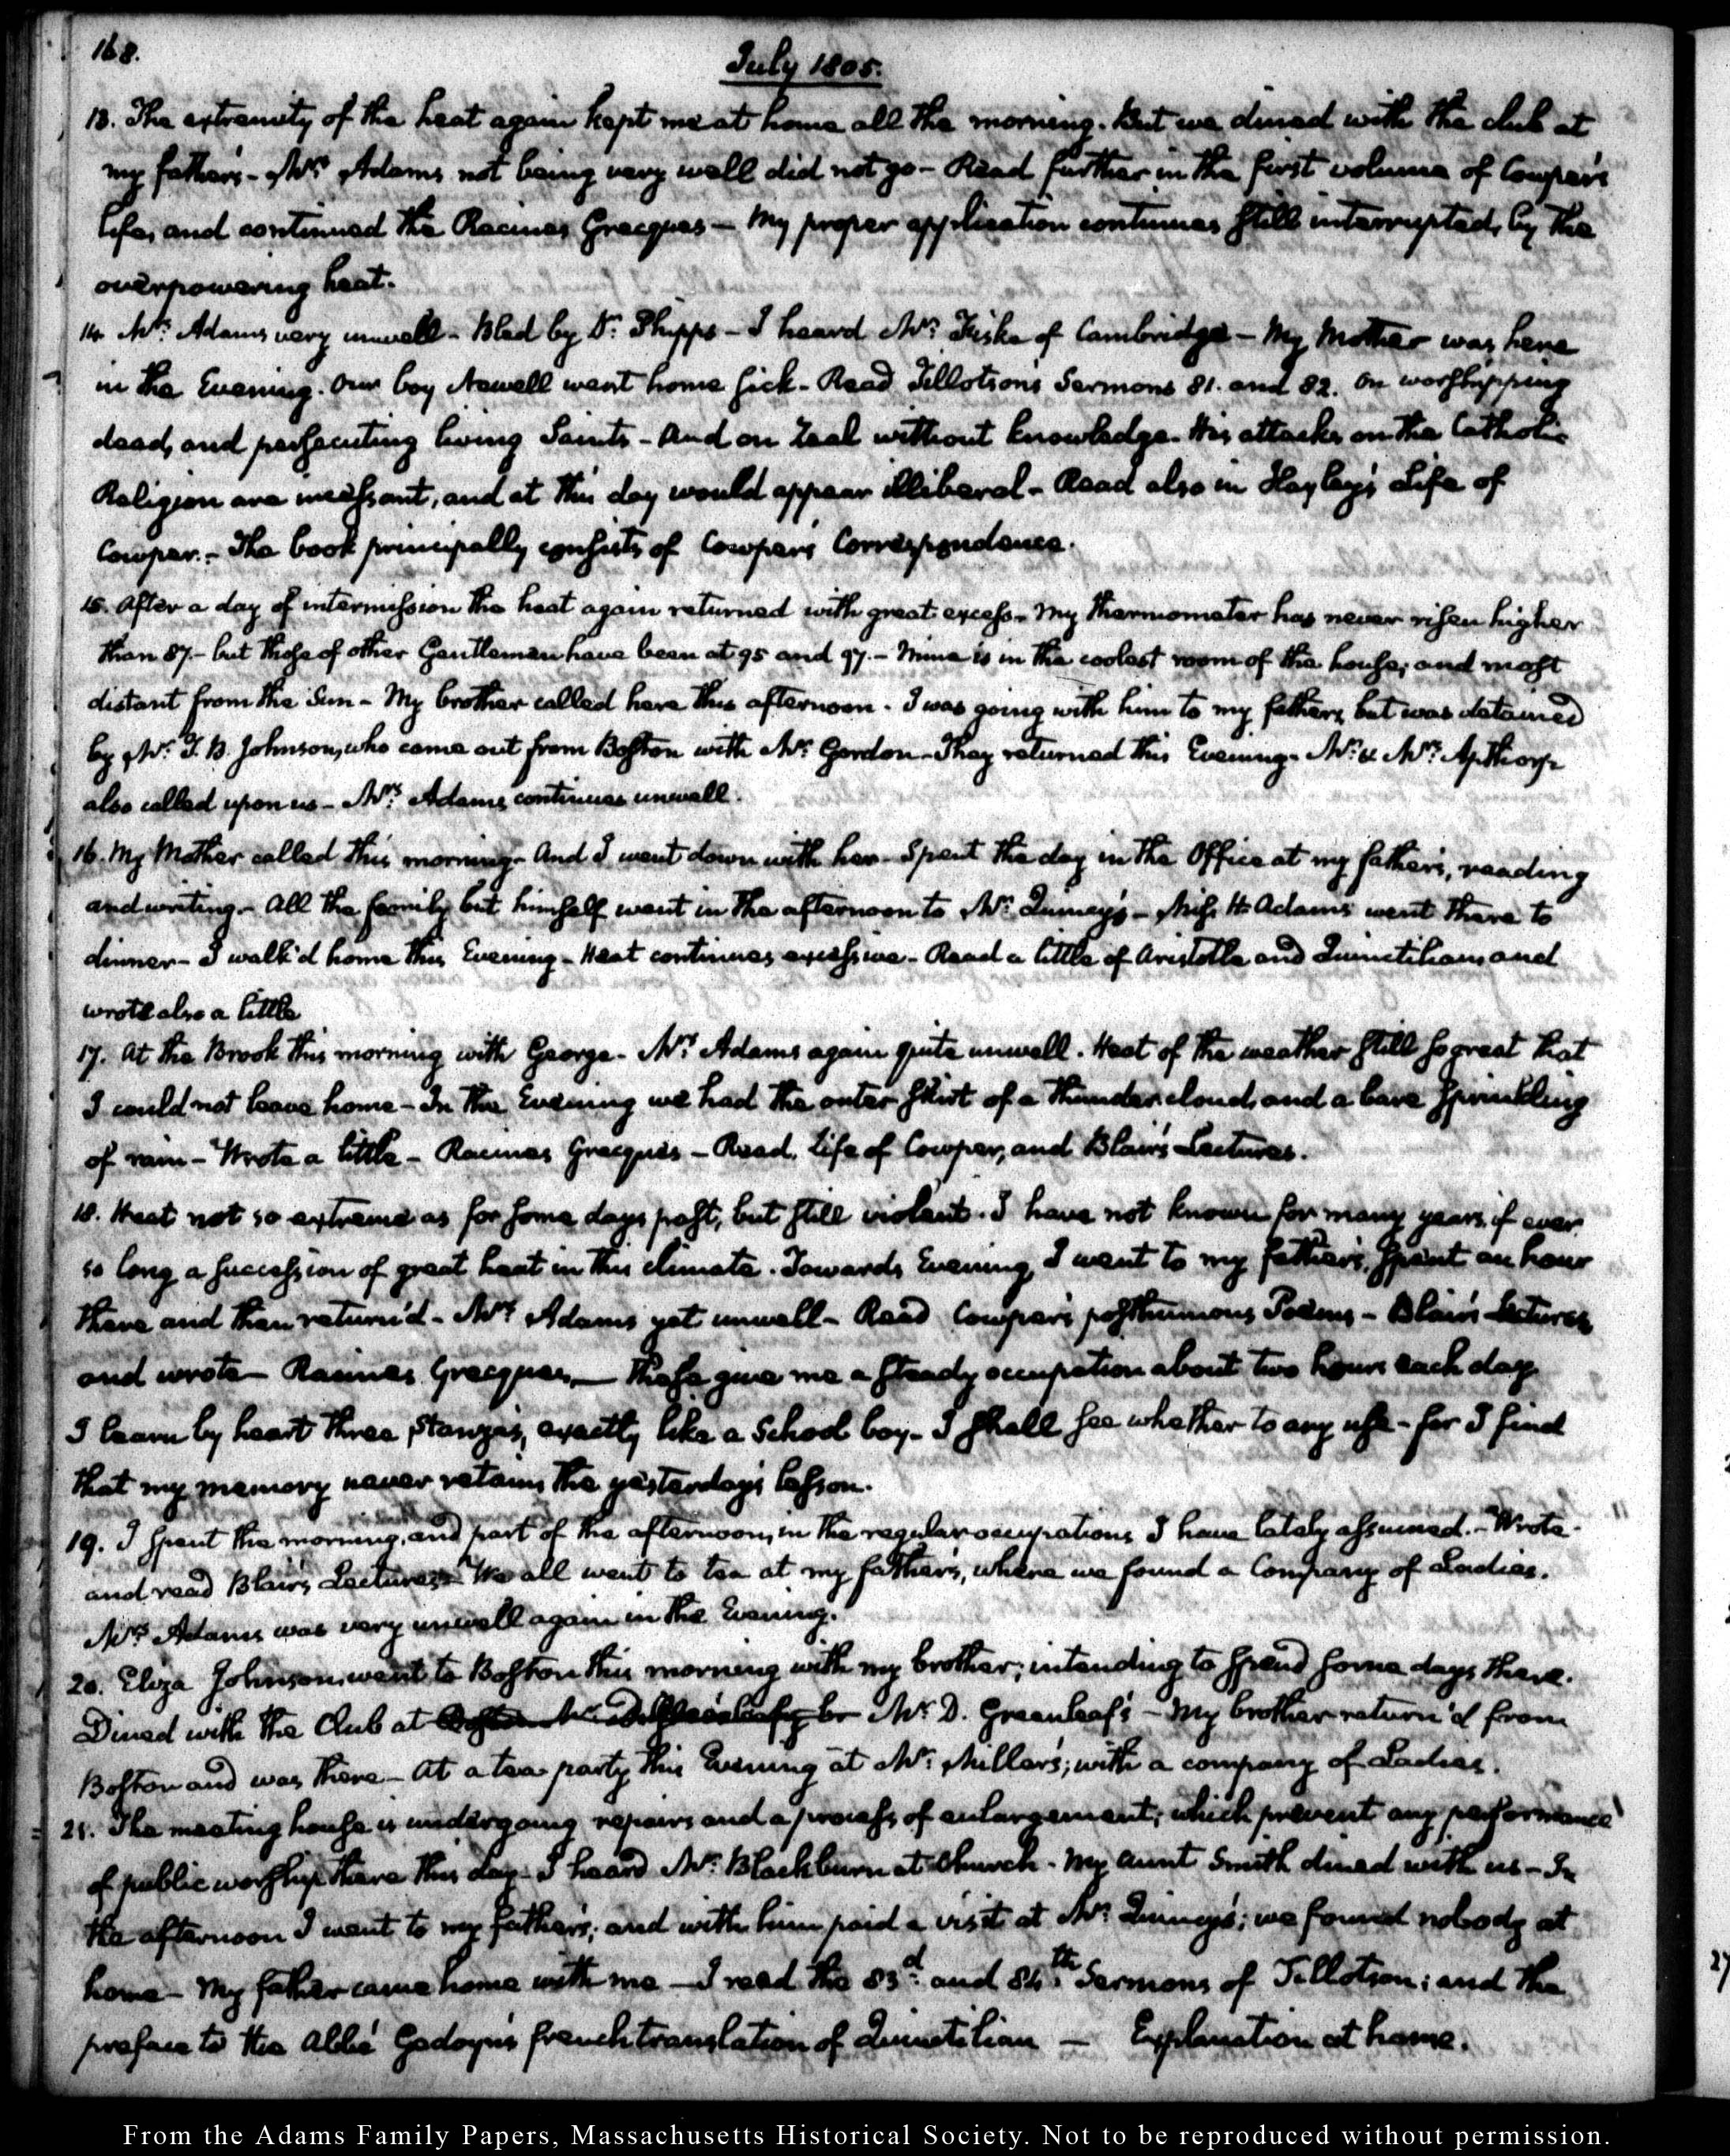 168.
July 1805.
13. The extremity of the heat again kept me at home all the morning. But we dined with the club at
my father's - Mrs. Adams not being very well did not go - Read further in the first volume of Cowper's
life, and continued the Racines Grecques - My proper application continues still interrupted, by the
overpowering heat.
14. Mrs. Adams very unwell - Bled by Dr. Phipps - I heard Mr. Fiske of Cambridge - My Mother was here
in the Evening. Our boy Newell went home sick - Read Tillotson's Sermons 81. and 82. On worshipping
dead, and persecuting living Saints - And on Zeal without knowledge. His attacks on the Catholic
Religion are incessant, and at this day would appear illiberal - Read also in Hayley's Life of
Cowper. - The book principally consists of Cowper's Correspondence.
15. After a day of intermission the heat again returned with great excess - My thermometer has never risen higher
than 87. - but those of other Gentlemen have been at 95 and 97. - Mine is in the coolest room of the house, and most
distant from the Sun - My brother called here this afternoon. I was going with him to my father's, but was detained
by Mr. T. B. Johnson, who came out from Boston with Mr. Gordon - They returned this Evening - Mr. & Mrs. Apthorp
also called upon us - Mrs. Adams continues unwell.
16. My Mother called this morning - And I went down with her - Spent the day in the Office at my father's, reading
and writing. - All the family but himself went in the afternoon to Mr. Quincy's - Miss H. Adams went there to
dinner - I walk'd home this Evening - Heat continues excessive - Read a little of Aristotle and Quinctilian, and
wrote also a little
17. At the Brook this morning with George - Mrs. Adams again quite unwell. Heat of the weather still so great that
I could not leave home - In the Evening we had the outer skirt of a thunder cloud, and a bare sprinkling
of rain - Wrote a little - Racines Grecques - Read, Life of Cowper, and Blair's Lectures.
18. Heat not so extreme as for some days past, but still violent. I have not known for many years, if ever
so long a succession of great heat in this climate. Towards Evening, I went to my father's, spent an hour
there and then return'd - Mrs. Adams yet unwell - Read Cowper's posthumous Poems - Blair's Lectures,
and wrote - Racines Grecques, — these give me a steady occupation about two hours each day
I learn by heart three, Stanzas, exactly like a School boy - I shall see whether to any use - for I find
that my memory never retains the yesterday's lesson.
19. I spent the morning, and part of the afternoon, in the regular occupations I have lately assumed. - Wrote
and read Blair's Lectures - We all went to tea at my father's, where we found a Company of Ladies.
Mrs. Adams was very unwell again in the Evening.
20. Eliza Johnson went to Boston this morning with my brother; intending to spend some days there.
Dined with the Club at Mr. D. Greenleaf's - My brother return'd from
Boston and was there - At a tea party this Evening at Mr. Miller's; with a company of Ladies.
21. The meeting house is undergoing repairs and a process of enlargement; which prevent any performance
of public worship there this day - I heard Mr. Blackburn at Church - My aunt Smith dined with us - In
the afternoon I went to my father's; and with him paid a visit at Mr. Quincy's; we found nobody at
home - My father came home with me - I read the 83d. and 84th. Sermons of Tillotson; and the
preface to the Abbé Gedoyn's french translation of Quinctilian — Explanation at home.
From the Adams Family Papers, Massachusetts Historical Society. Not to be reproduced without permission.